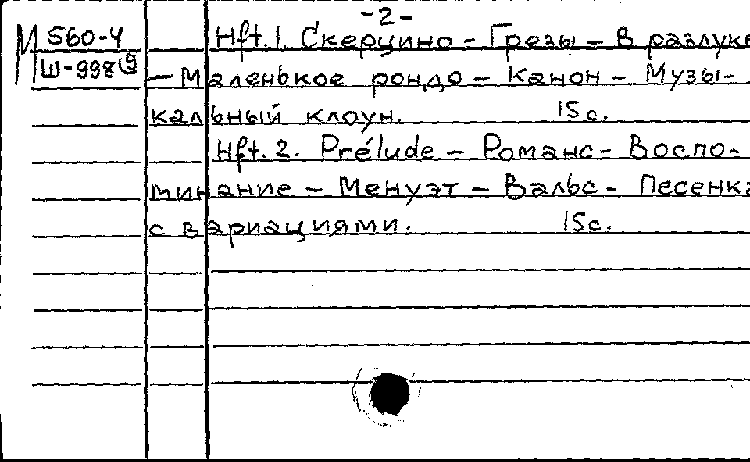 -2-
М 560-4
Ш-998(9
Hft. 1. Скерцино - Грезы - В разлуке
- Маленькое рондо - Канон - Музы-
кальный клоун. 15с.
Hft. 2. Prélude - Романс - Воспо-
минание - Менуэт - Вальс - Песенка
с вариациями. 15с.